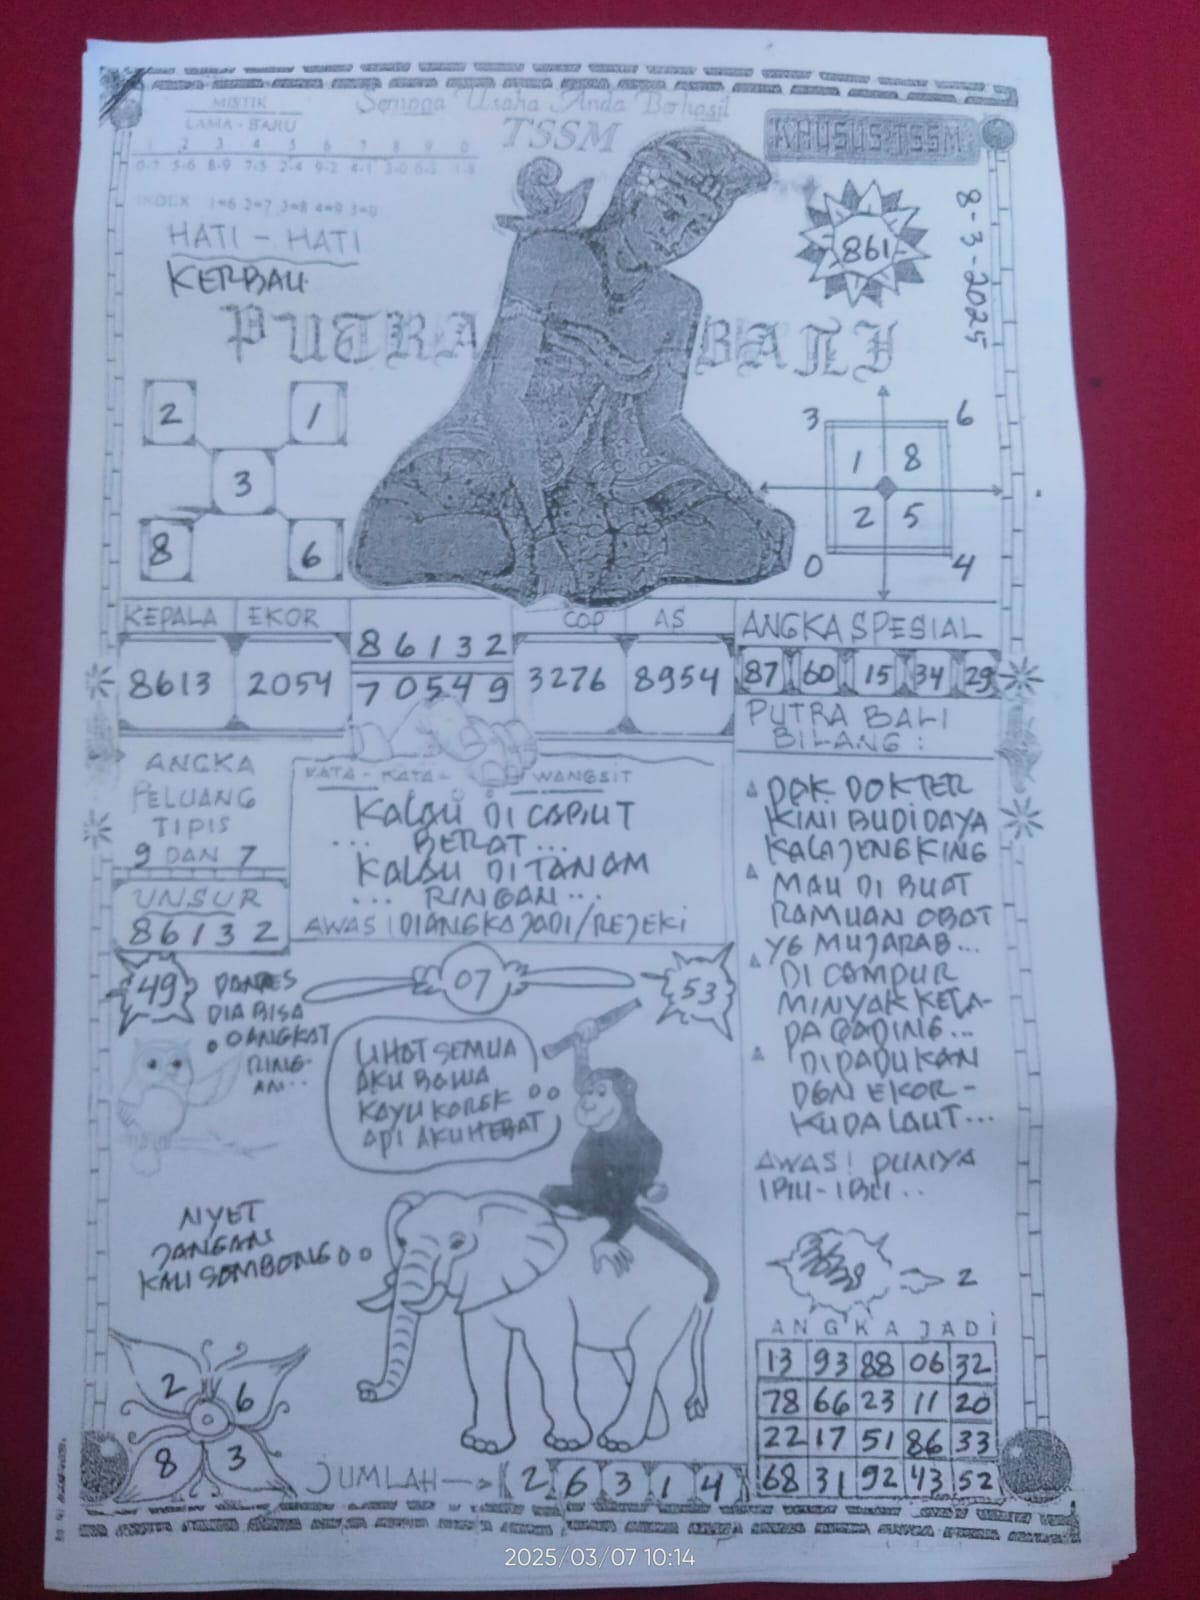 Semoga Usaha Anda Berhasil
TSSM
KHUSUS TSSM
MISTIK
LAMA - BARU
1 2 3 4 5 6 7 8 9 0
0-7 5-6 8-9 7-5 2-4 9-2 4-1
INDEX 1=6 2=7 3=8 4=9
HATI - HATI
KERBAU
8-3-2025
861
PUTRA BALI
2 1
3
8 6
3 6
1 8
2 5
0 4
KEPALA EKOR
8613 2054
86132
70549
COP AS
3276 8954
ANGKA SPESIAL
87 60 15 34 29
PUTRA BALI
BILANG :
ANGKA
PELUANG
TIPIS
9 DAN 7
UNSUR
86132
KATA - KATA - WANGSIT
KALAU DI CABUT
... BERAT ...
KALAU DI TANAM
... RINGAN ...
AWAS ! DIANGKA JADI/REJEKI
PAK DOKTER
KINI BUDIDAYA
KALAJENGKING
MAU DI BUAT
RAMUAN OBAT
YG MUJARAB...
DI CAMPUR
MINYAK KELA-
PA GADING...
DIPADUKAN
DGN EKOR-
KUDA LAUT...
AWAS! PUNYA
IBU-IBU..
49
PANTES
DIA BISA
DANGKAT
RING-
AN..
07
53
LIHAT SEMUA
AKU BAWA
KAYU KOREK
API AKU HEBAT
NYET
JANGAN
KALI SOMBONG
2
ANGKA JADI
13 93 88 06 32
78 66 23 11 20
22 17 51 86 33
68 31 92 43 52
2 6
8 3
JUMLAH 2 6 3 1 4
2025/03/07 10:14